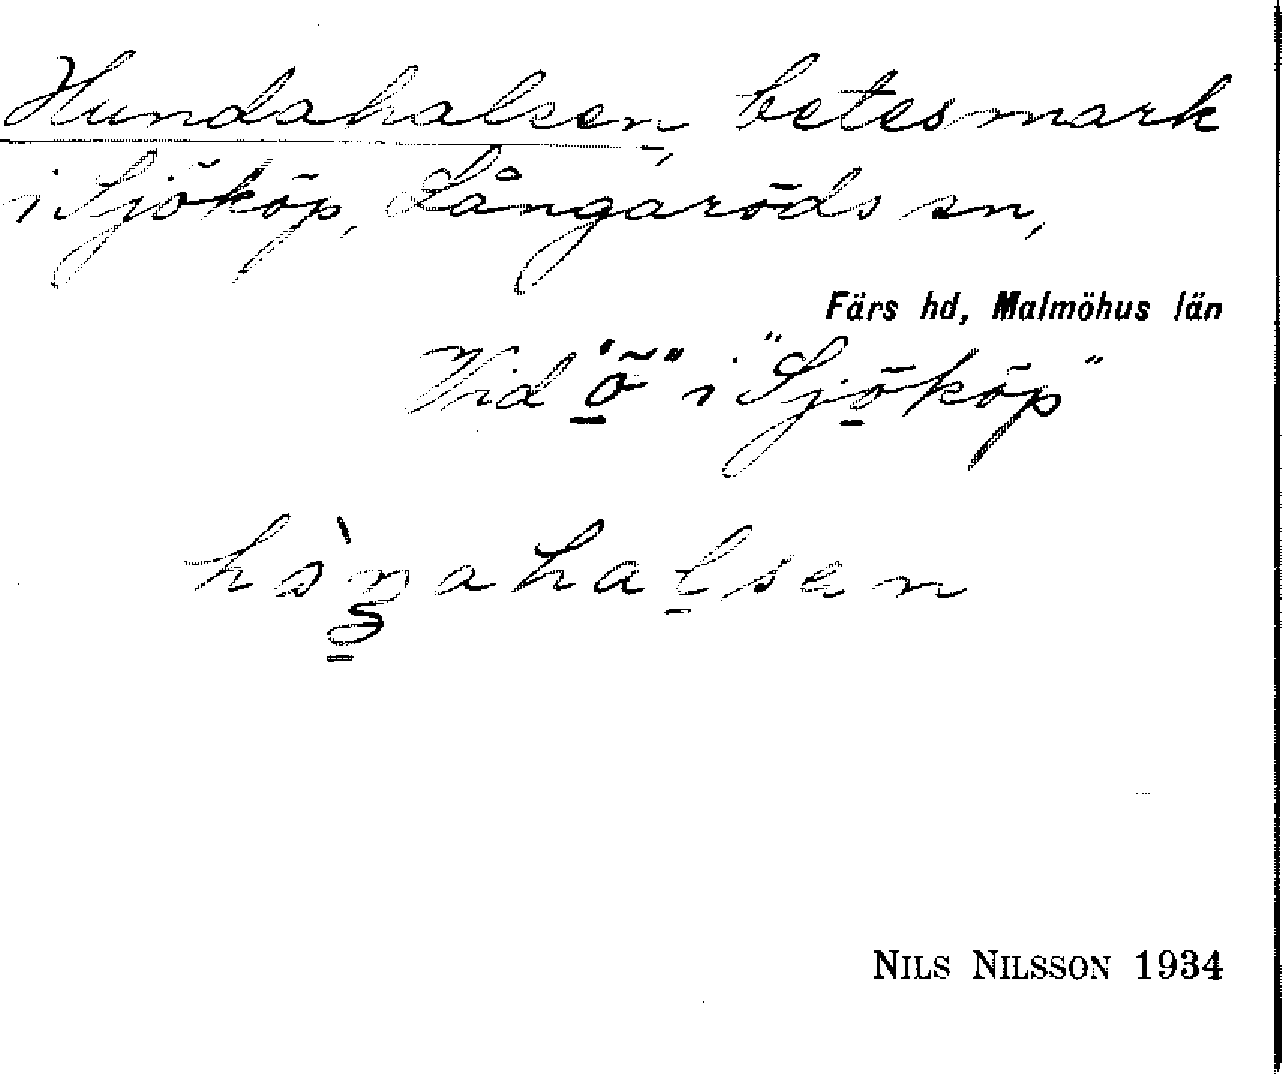 Hundahalsen, betesmark
i Sjököp, Långaröds sn,
Färs hd, Malmöhus län
Vid "ö" i "Sjököp"
NILS NILSSON 1934